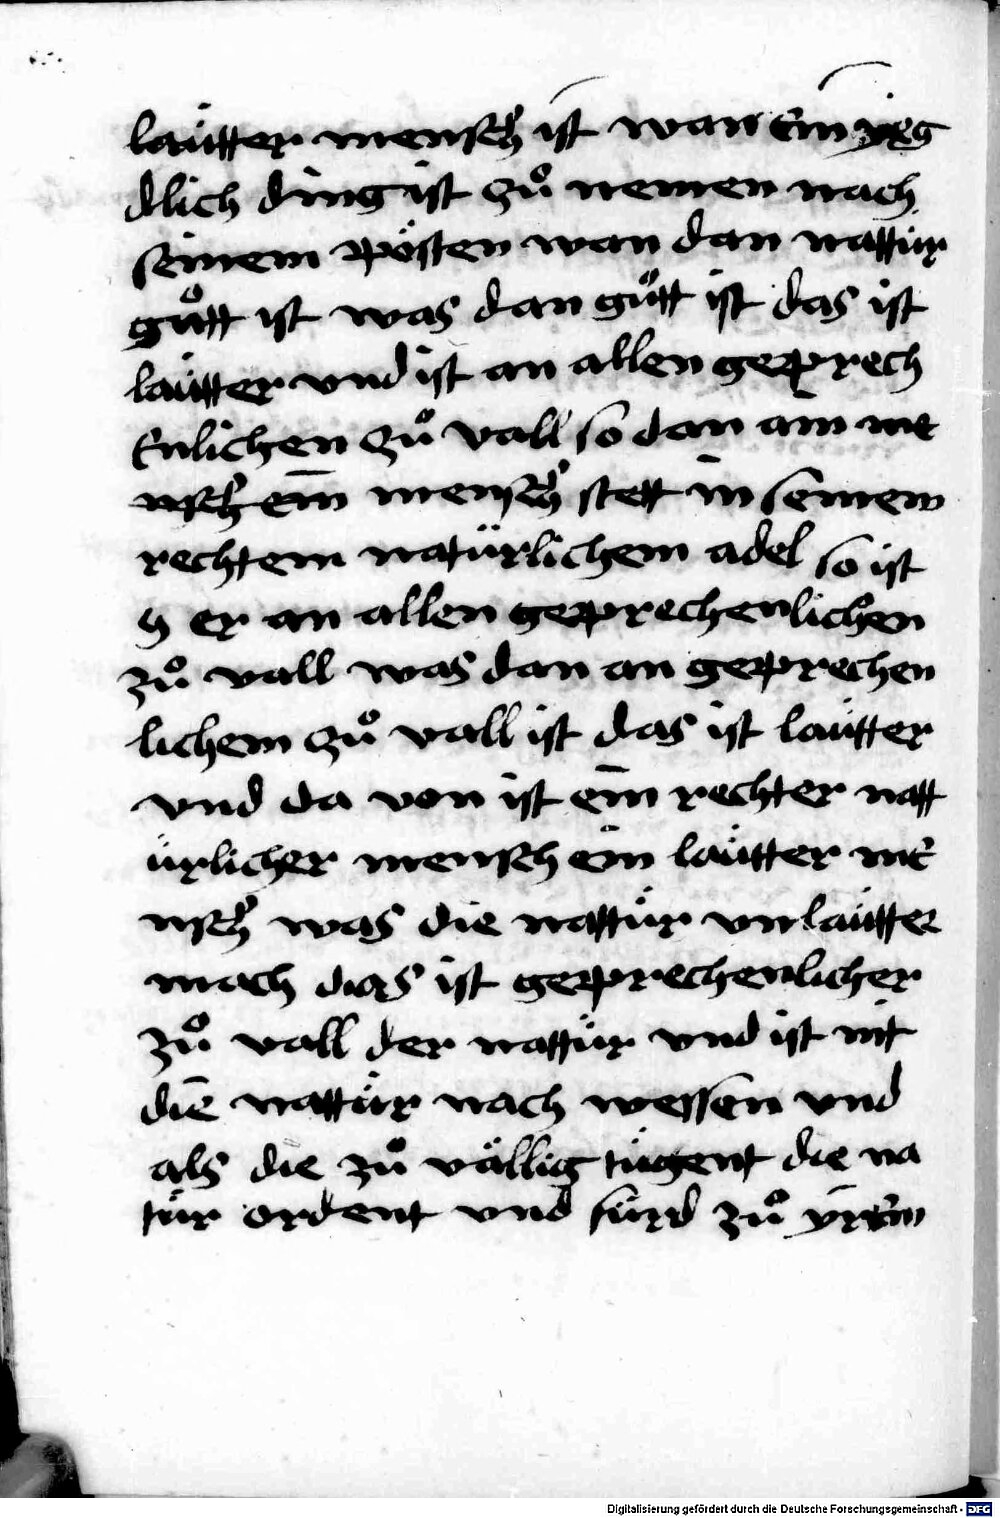 laütter mensch ist wan ein yeg
dlich ding ist zů nemen nach
seinem pösten wan dan nattür
gůtt ist was dan gůtt ist das ist
laütter vnd ist an allen geprech
enlichen zů vall so dan ain me
nsch ein mensch stett in seinem
rechtem natürlichem adel so ist
er an allen geprechenlichen
zů vall was dan an geprechen
lichem zů vall ist das ist laütter
vnd da von ist ein rechter natt
ürlicher mensch ein laütter me
nsch was die nattür vnlaütter
mach das ist geprechenlicher
zů vall der nattür vnd ist nit
die nattür nach wessen vnd
als die zů vällig tügent die na
tür ordent vnd fürd zů yrem
Digitalisierung gefördert durch die Deutsche Forschungsgemeinschaft - DFG